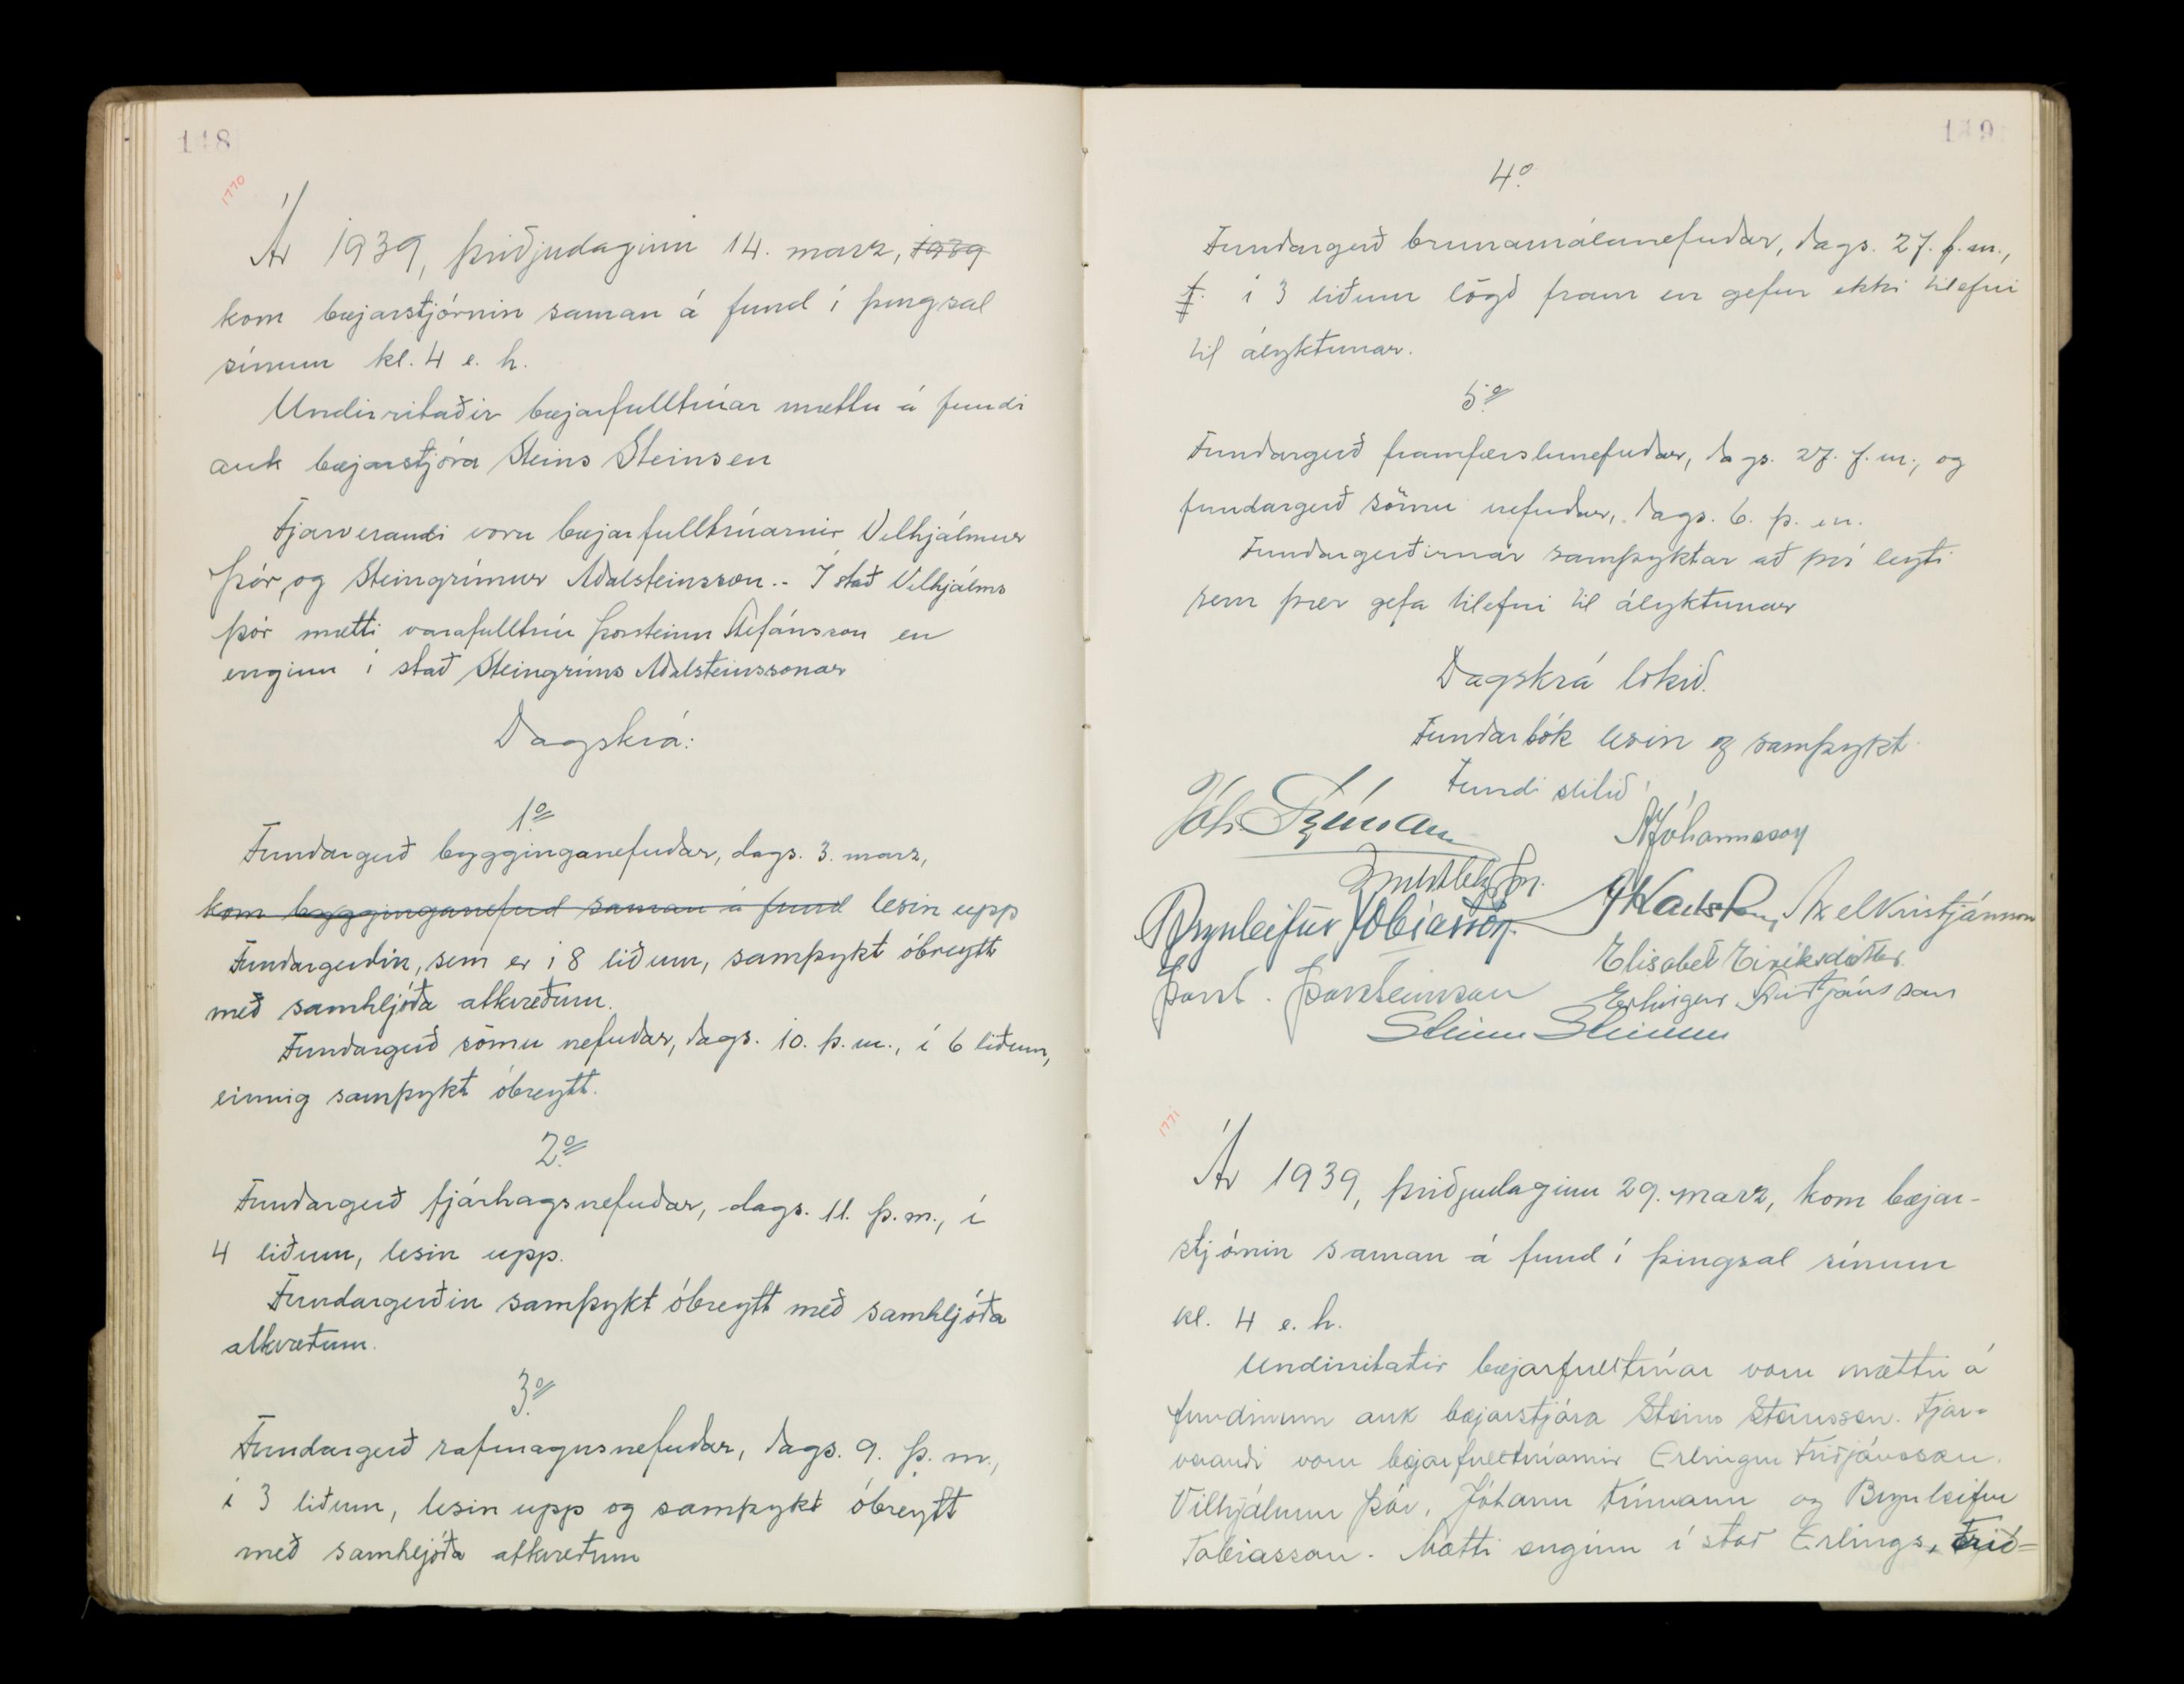 118
1770
Ár 1939, þriðjudaginn 14. marz, 1939
kom bæjarstjórnin saman á fund í þingsal
sínum kl. 4 e. h.
Undirritaðir bæjarfulltrúar mættu á fundi
auk bæjarstjóra Steins Steinsen
Fjarverandi voru bæjarfulltrúarnir Vilhjálmur
Þór, og Steingrímur Aðalsteinsson.- Í stað Vilhjálms
Þór mætti varafulltrúi Þorsteinn Stefánsson en
enginn í stað Steingríms Aðalsteinssonar
Dagskrá:
1.º
Fundargerð bygginganefndar, dags. 3. marz,
kom bygginganefnd saman á fund lesin upp
Fundargerðin, sem er í 8 liðum, samþykt óbreytt
með samhljóða atkvæðum.
Fundargerð sömu nefndar, dags. 10. þ. m., í 6 liðum,
einnig samþykt óbreytt.
2.º
Fundargerð fjárhagsnefndar, dags. 11. þ. m., í
4 liðum, lesin upp.
Fundargerðin samþykt óbreytt með samhljóða
atkvæðum.
3.º
Fundargerð rafmagnsnefndar, dags. 9. þ. m.,
í 3 liðum, lesin upp og samþykt óbreytt
með samhljóða atkvæðum
119
4.º
Fundargerð brunamálanefndar, dags. 27. f. m.,
f. í 3 liðum lögð fram en gefur ekki tilefni
til ályktunar.
5.º
Fundargerð framfærslunefndar, dags. 27. f. m., og
fundargerð sömu nefndar, dags. 6. þ. m.
Fundargerðirnar samþyktar að því leyti
sem þær gefa tilefni til ályktunar
Dagskrá lokið.
Fundarbók lesin og samþykt.
Fundi slitið
Jóh Frímann
Jóhannsson
Brynleifur Tobiasson.
Axel Kristjánsson
Elísabet Eiríksdóttir
Þorst. Þorsteinsson
Erlingur Friðjónsson
Steinn Steinsen
1771
Ár 1939, þriðjudaginn 29. marz, kom bæjar-
stjórnin saman á fund í þingsal sínum
kl. 4 e. h.
Undirritaðir bæjarfulltrúar voru mættir á
fundinum auk bæjarstjóra Steins Steinsen. Fjar-
verandi voru bæjarfulltrúarnir Erlingur Friðjónsson.
Vilhjálmur Þór, Jóhann Frímann og Brynleifur
Tobiasson. Mætti enginn í stað Erlings, Frið=